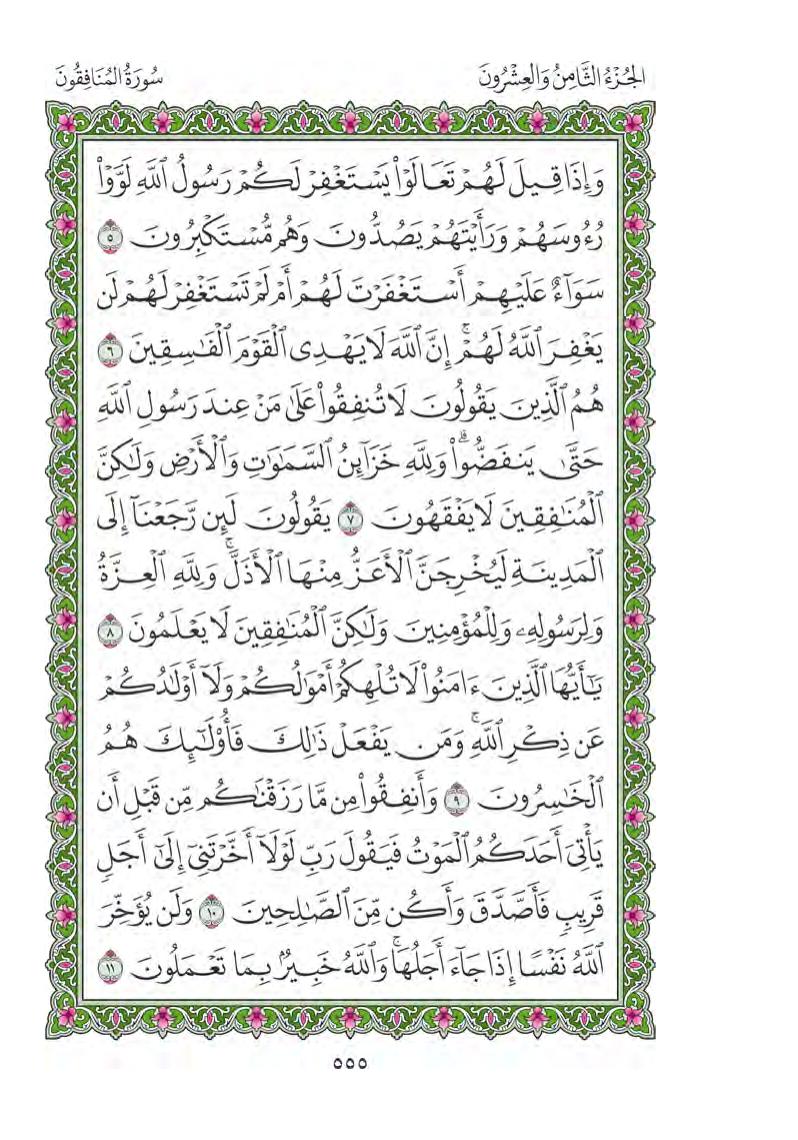 الجُزْءُ الثَّامِنُ وَالعِشْرُونَ
سُورَةُ المُنَافِقُونَ
وَإِذَا قِيلَ لَهُمْ تَعَالَوْا۟ يَسْتَغْفِرْ لَكُمْ رَسُولُ ٱللَّهِ لَوَّوْا۟
رُءُوسَهُمْ وَرَأَيْتَهُمْ يَصُدُّونَ وَهُم مُّسْتَكْبِرُونَ ٥
سَوَآءٌ عَلَيْهِمْ أَسْتَغْفَرْتَ لَهُمْ أَمْ لَمْ تَسْتَغْفِرْ لَهُمْ لَن
يَغْفِرَ ٱللَّهُ لَهُمْۚ إِنَّ ٱللَّهَ لَا يَهْدِى ٱلْقَوْمَ ٱلْفَٰسِقِينَ ٦
هُمُ ٱلَّذِينَ يَقُولُونَ لَا تُنفِقُوا۟ عَلَىٰ مَنْ عِندَ رَسُولِ ٱللَّهِ
حَتَّىٰ يَنفَضُّوا۟ۗ وَلِلَّهِ خَزَآئِنُ ٱلسَّمَٰوَٰتِ وَٱلْأَرْضِ وَلَٰكِنَّ
ٱلْمُنَٰفِقِينَ لَا يَفْقَهُونَ ٧ يَقُولُونَ لَئِن رَّجَعْنَآ إِلَى
ٱلْمَدِينَةِ لَيُخْرِجَنَّ ٱلْأَعَزُّ مِنْهَا ٱلْأَذَلَّۚ وَلِلَّهِ ٱلْعِزَّةُ
وَلِرَسُولِهِۦ وَلِلْمُؤْمِنِينَ وَلَٰكِنَّ ٱلْمُنَٰفِقِينَ لَا يَعْلَمُونَ ٨
يَٰٓأَيُّهَا ٱلَّذِينَ ءَامَنُوا۟ لَا تُلْهِكُمْ أَمْوَٰلُكُمْ وَلَآ أَوْلَٰدُكُمْ
عَن ذِكْرِ ٱللَّهِۚ وَمَن يَفْعَلْ ذَٰلِكَ فَأُو۟لَٰٓئِكَ هُمُ
ٱلْخَٰسِرُونَ ٩ وَأَنفِقُوا۟ مِن مَّا رَزَقْنَٰكُم مِّن قَبْلِ أَن
يَأْتِىَ أَحَدَكُمُ ٱلْمَوْتُ فَيَقُولَ رَبِّ لَوْلَآ أَخَّرْتَنِىٓ إِلَىٰٓ أَجَلٍ
قَرِيبٍ فَأَصَّدَّقَ وَأَكُن مِّنَ ٱلصَّٰلِحِينَ ١٠ وَلَن يُؤَخِّرَ
ٱللَّهُ نَفْسًا إِذَا جَآءَ أَجَلُهَاۚ وَٱللَّهُ خَبِيرٌۢ بِمَا تَعْمَلُونَ ١١
٥٥٥